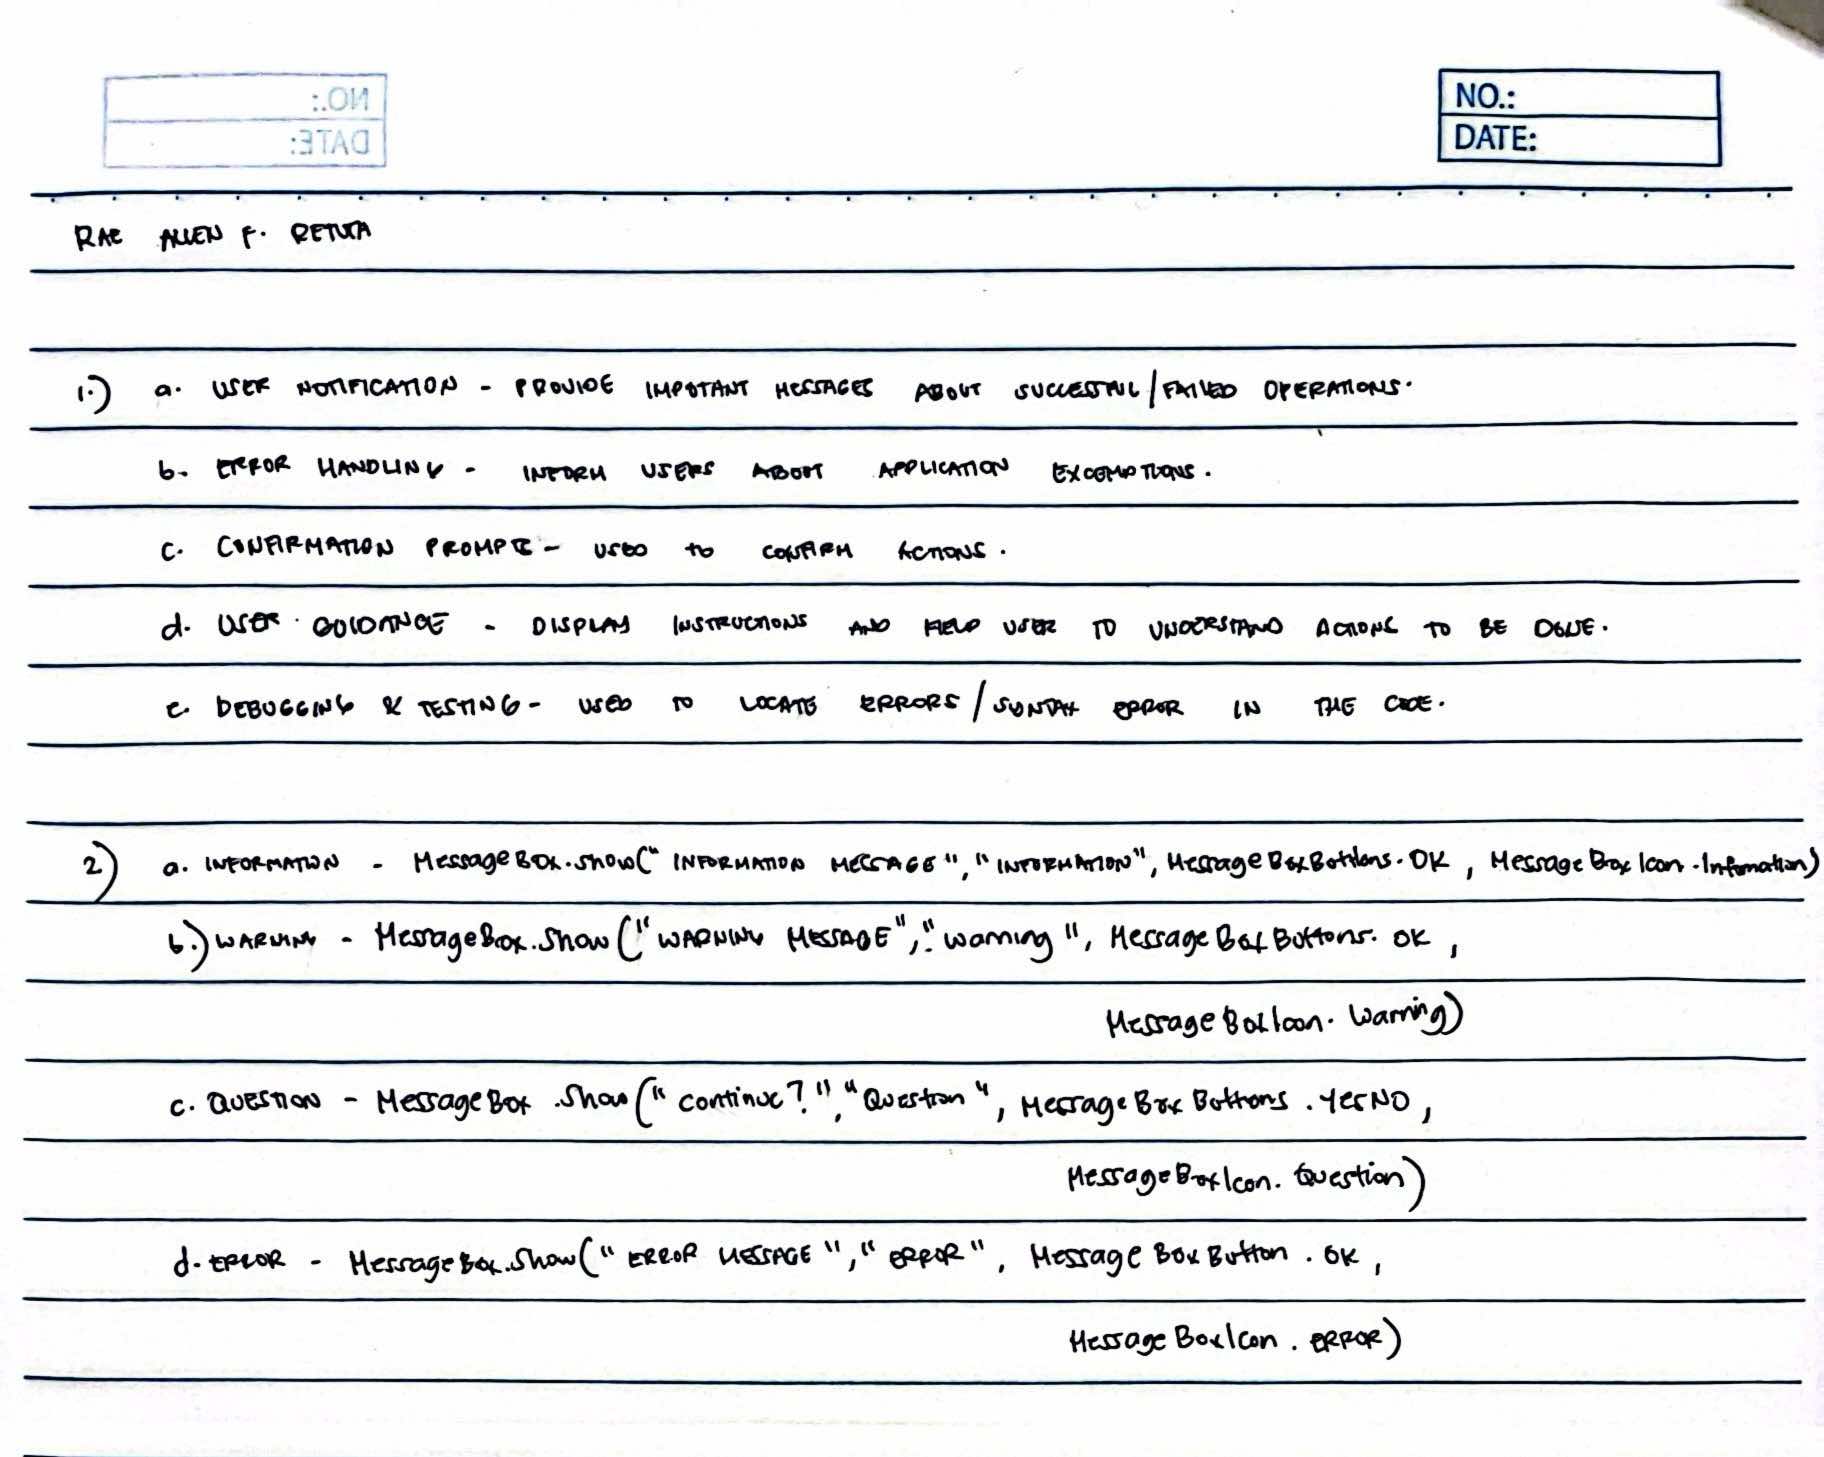 NO.:
DATE:
NO.:
DATE:
RAE ALLEN F. RETUTA
1.) a. USER NOTIFICATION - PROVIDE IMPOTANT MESSAGES ABOUT SUCCESSFUL/FAILED OPERATIONS.
b. ERROR HANDLING - INFORM USERS ABOUT APPLICATION EXCEMPTIONS.
c. CONFIRMATION PROMPTS - USED to CONFIRM ACTIONS.
d. USER GUIDANCE - DISPLAY INSTRUCTIONS AND HELP USER TO UNDERSTAND ACTIONS TO BE DONE.
e. DEBUGGING & TESTING - USED TO LOCATE ERRORS/SYNTAX ERROR IN THE CODE.
2) a. INFORMATION - MessageBox.show("INFORMATION MESSAGE","INFORMATION", MessageBoxButtons.OK, MessageBoxIcon.Infomation)
b.) WARNING - MessageBox.Show("WARNING MESSAGE","Warning", MessageBoxButtons.OK,
MessageBoxIcon.Warning)
c. QUESTION - MessageBox.Show("continue?","Question", MessageBoxButtons.YesNO,
MessageBoxIcon.Question)
d. ERROR - MessageBox.Show("ERROR MESSAGE","ERROR", MessageBoxButton.OK,
MessageBoxIcon.ERROR)